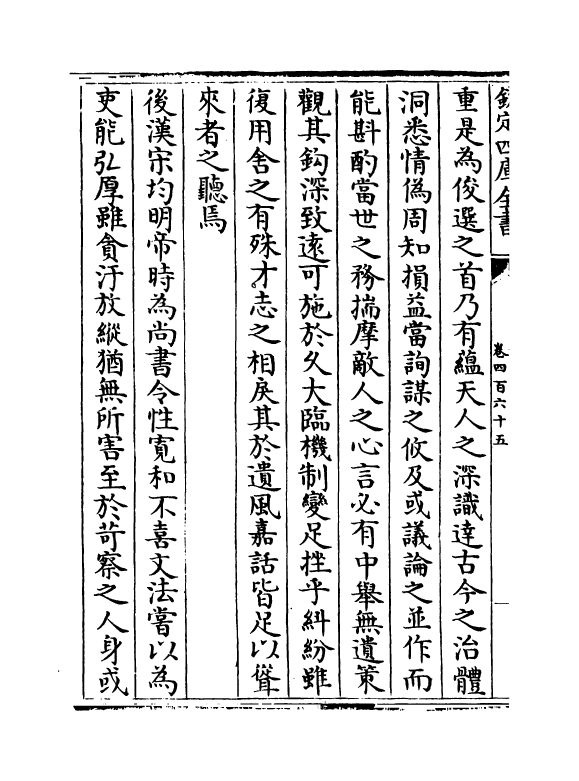 欽定四庫全書
卷四百六十五
重是為俊選之首乃有蘊天人之深識達古今之治體
洞悉情偽周知損益當詢謀之攸及或議論之並作而
能斟酌當世之務揣摩敵人之心言必有中舉無遺策
觀其鈎深致遠可施於久大臨機制變足挫乎糾紛雖
復用舍之有殊才志之相戾其於遺風嘉話皆足以聳
來者之聽焉
後漢宋均明帝時為尚書令性寛和不喜文法嘗以為
吏能弘厚雖貪汙放縱猶無所害至於苛察之人身或